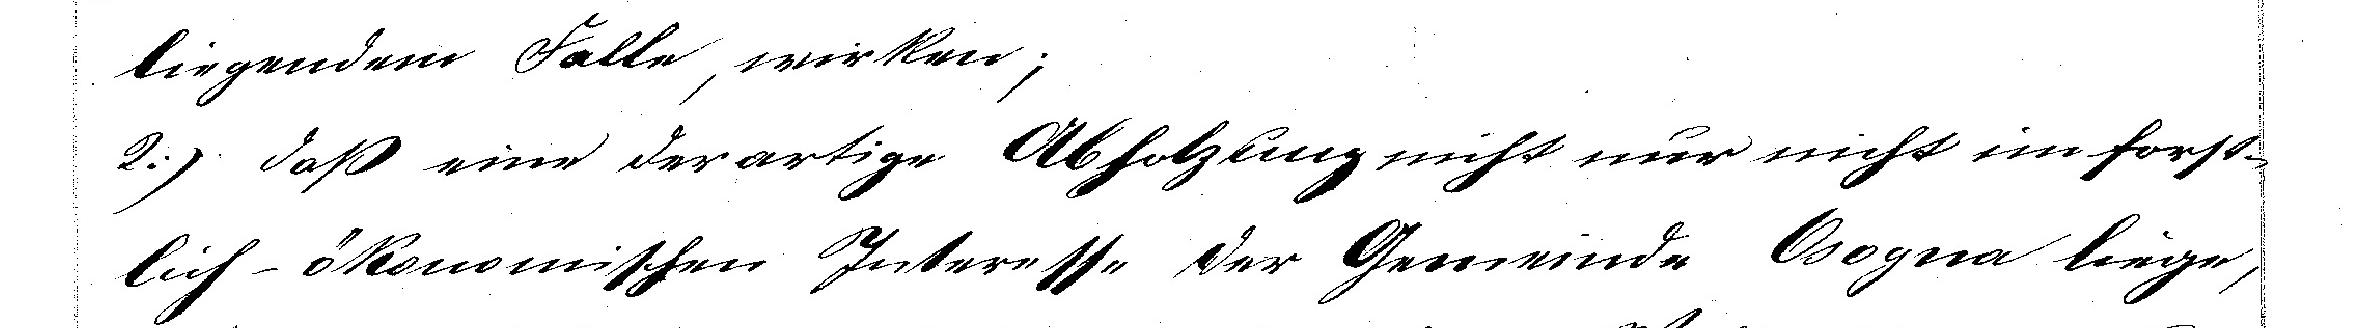 liegendem Falle, wirken;
2.) daß eine derartige Abholzung nicht nur nicht im forst-
lich-ökonomischen Interesse der Gemeinde Osogna liege,